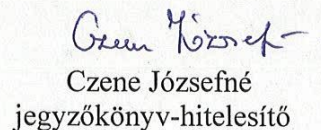 Czene Józsefné
Czene Józsefné
jegyzőkönyv-hitelesítő